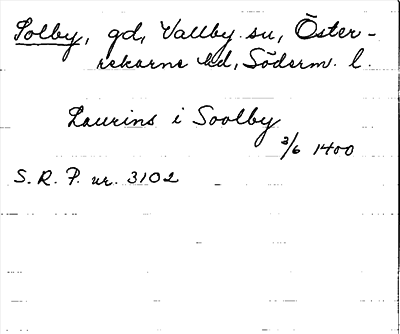 Solby, gd, Vallby sn, Öster-
rekarne hd, Söderm. l.
Laurins i Soolby
3/6 1400
S. R. P. nr. 3102